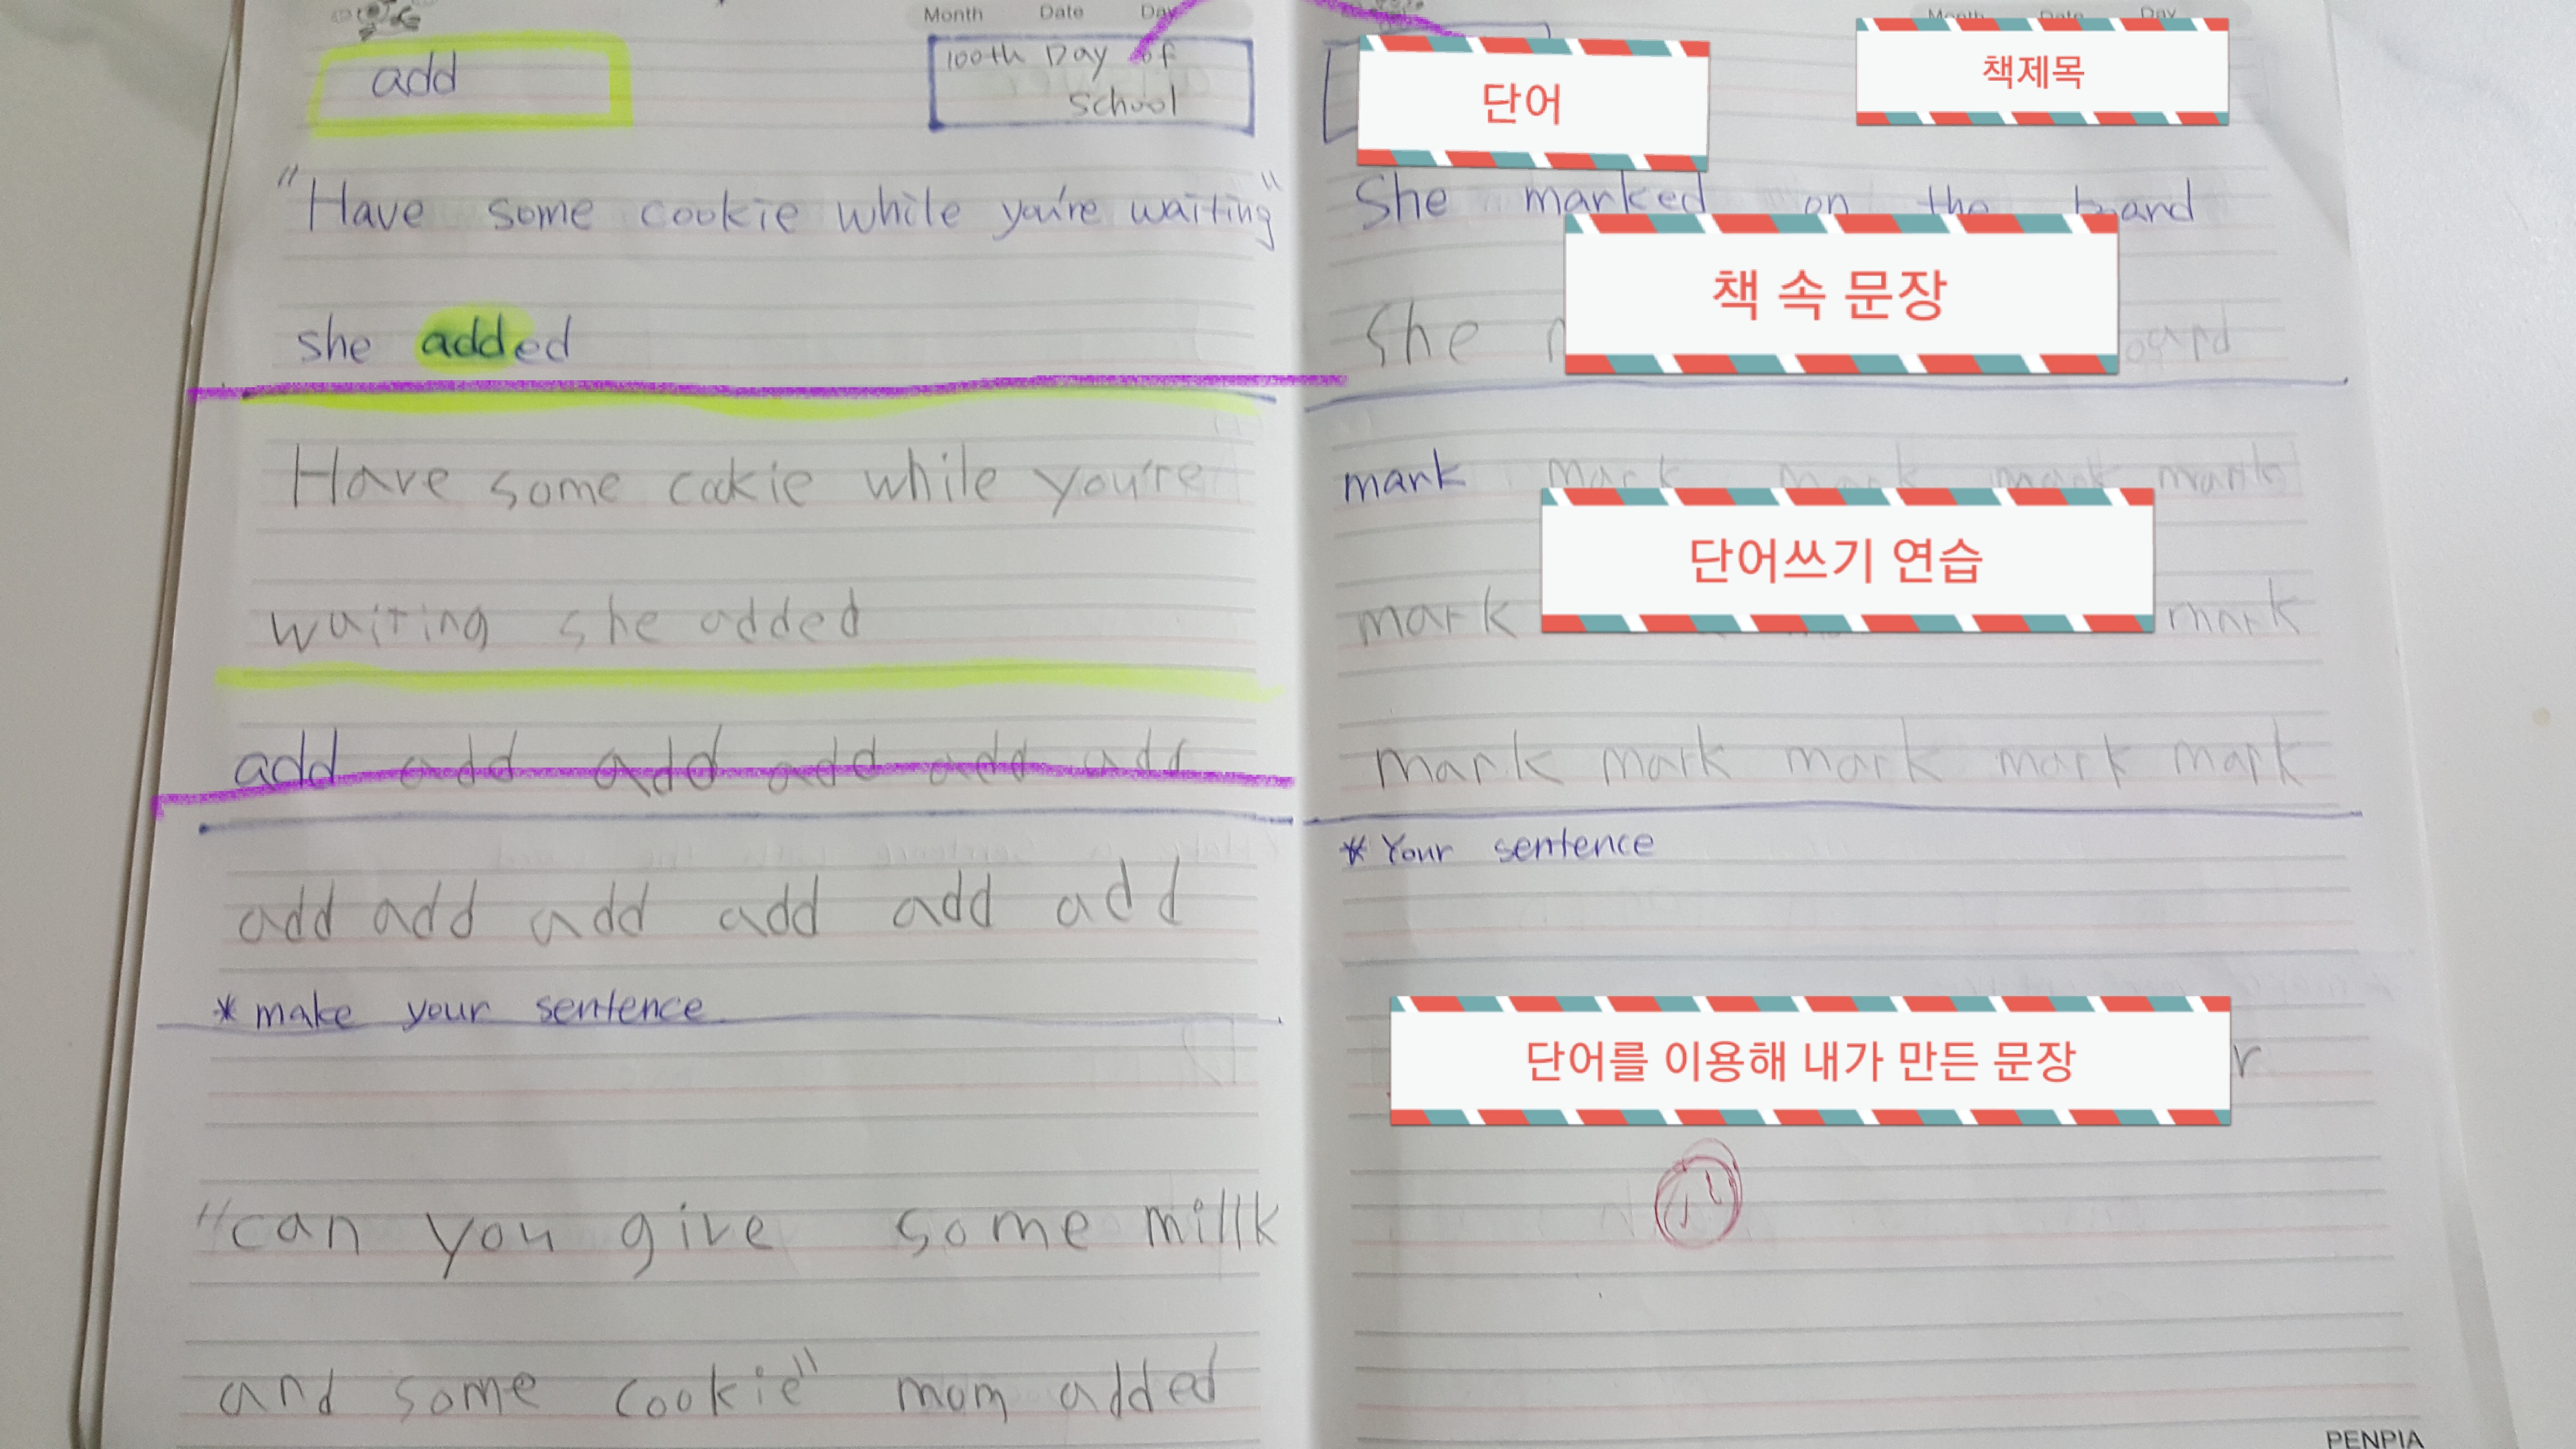 Month Date Day
add
100th Day of
school
"Have some cookie while you're waiting"
she added
Have some cookie while you're
waiting she added
add add add add add add
add add add add add add
* make your sentence
"can you give some millk
and some cookie" mom added
Month Date Day
단어
책제목
She marked on the board
책 속 문장
She
mark mark mark mark mark
단어쓰기 연습
mark mark
mark mark mark mark mark
* Your sentence
단어를 이용해 내가 만든 문장
r
PENPIA